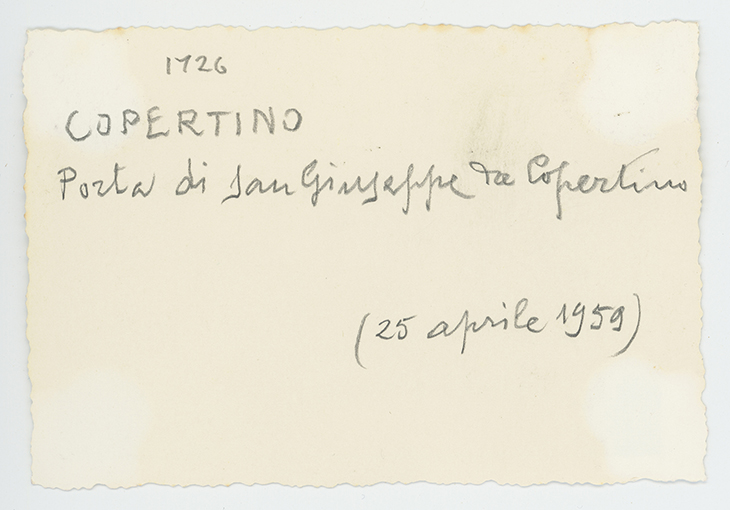 1726
COPERTINO
Porta di San Giuseppe da Copertino
(25 aprile 1959)